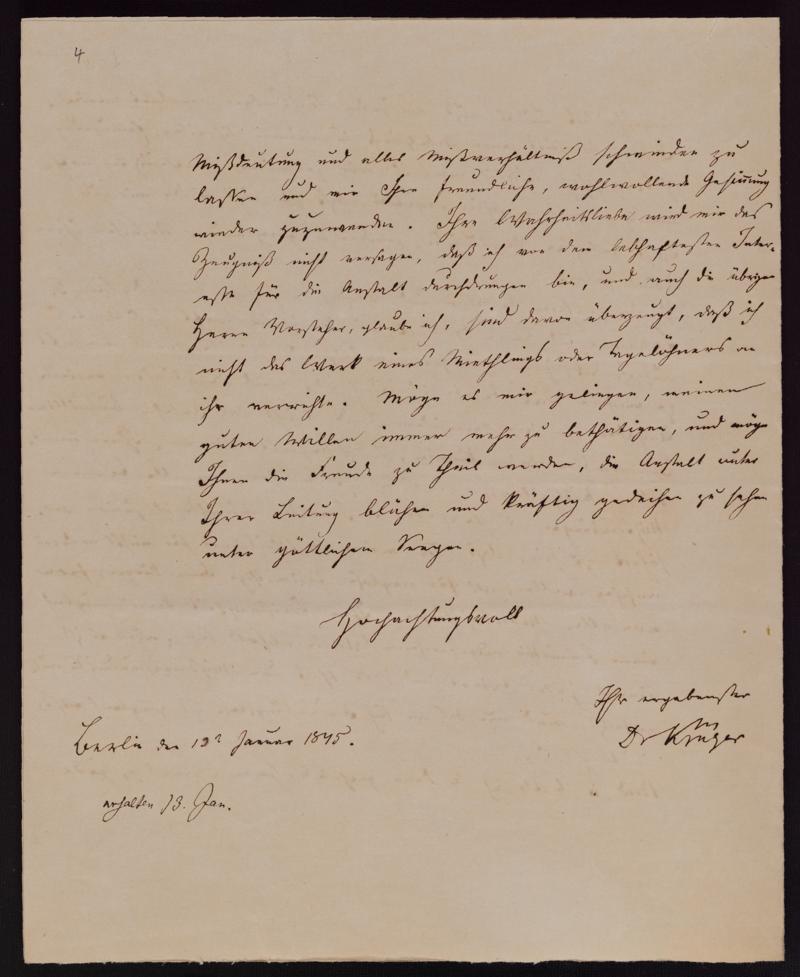 4
Mißdeutung und alles Mißverhältniß schwinden zu
lassen und mir Ihre freundliche, wohlwollende Gesinnung
wieder zuzuwenden. Ihre Wahrheitsliebe wird mir das
Zeugniß nicht versagen, daß ich von dem lebhaftesten Inter-
esse für die Anstalt durchdrungen bin, und auch die übrigen
Herren Vorsteher, glaube ich, sind davon überzeugt, daß ich
nicht das Werk eines Miethlings oder Tagelöhners an
ihr verrichte. Möge es mir gelingen, meinen
guten Willen immer mehr zu bethätigen, und möge
Ihnen die Freude zu Theil werden, die Anstalt unter
Ihrer Leitung blühen und kräftig gedeihen zu sehen
unter göttlichem Seegen.
Hochachtungsvoll
Ihr ergebenster
Dr Krüger
Berlin den Januar 1845.
erhalten 13. Jan.